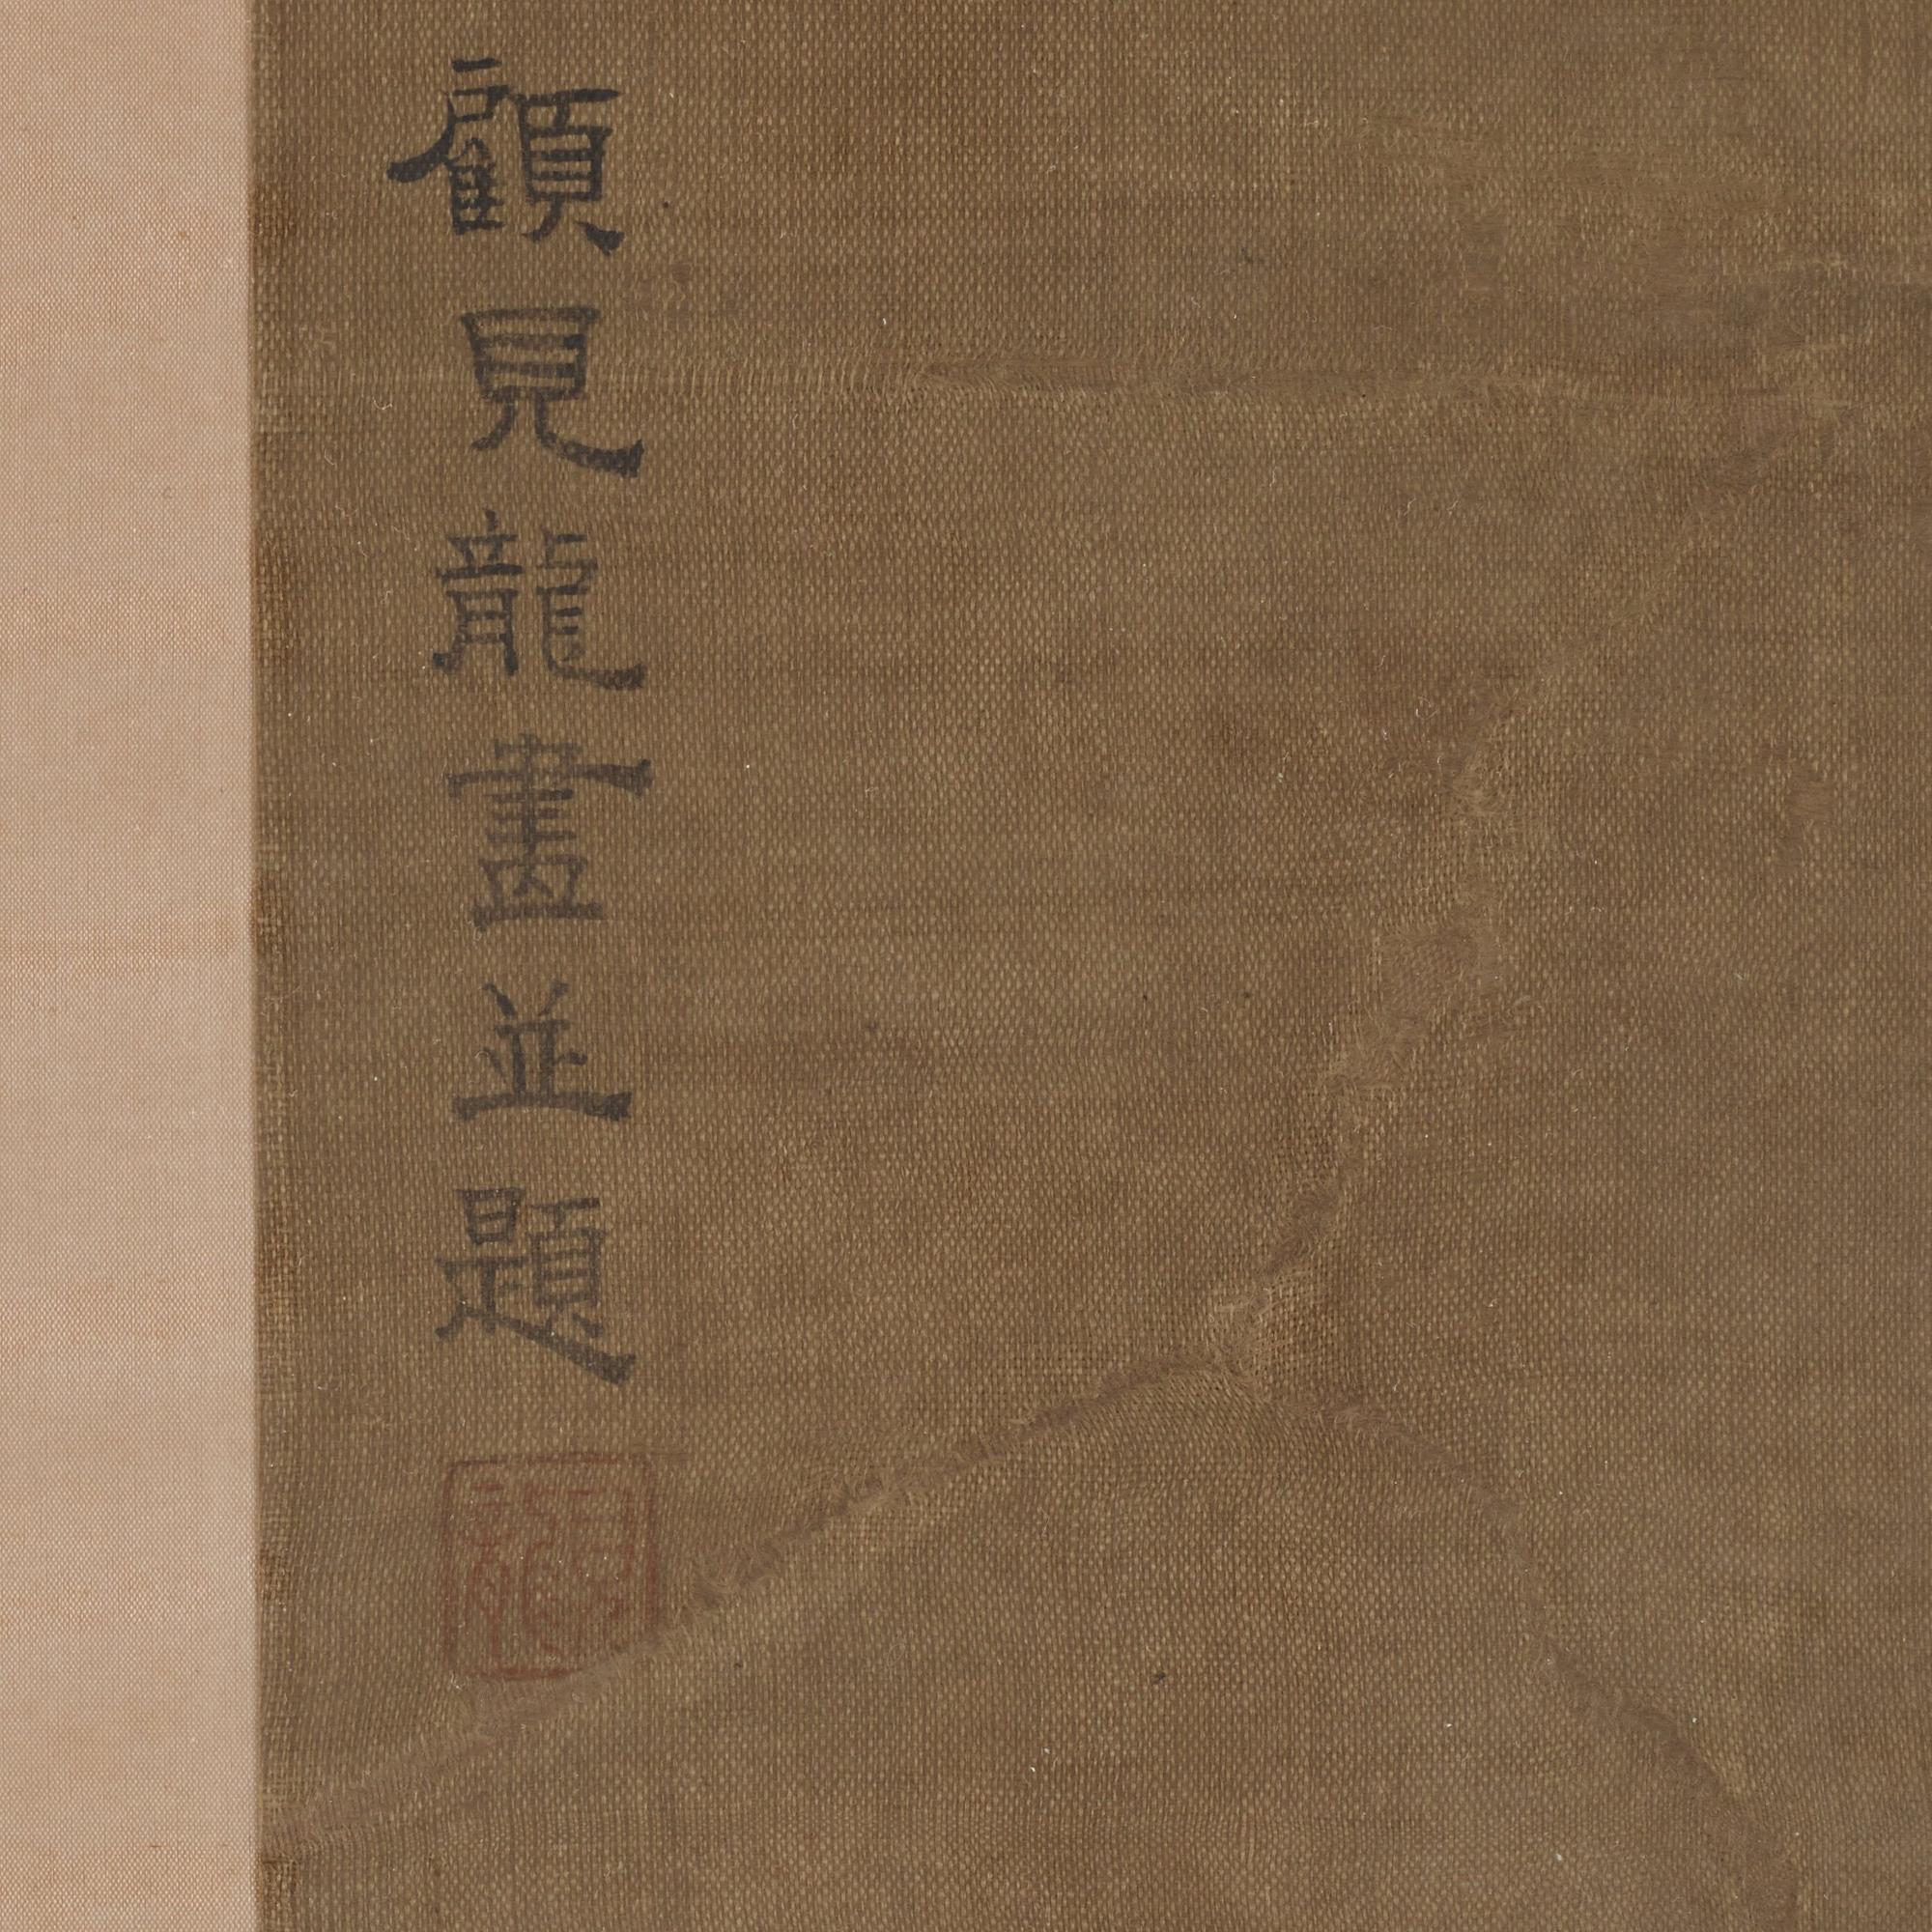 顧見龍畫並題